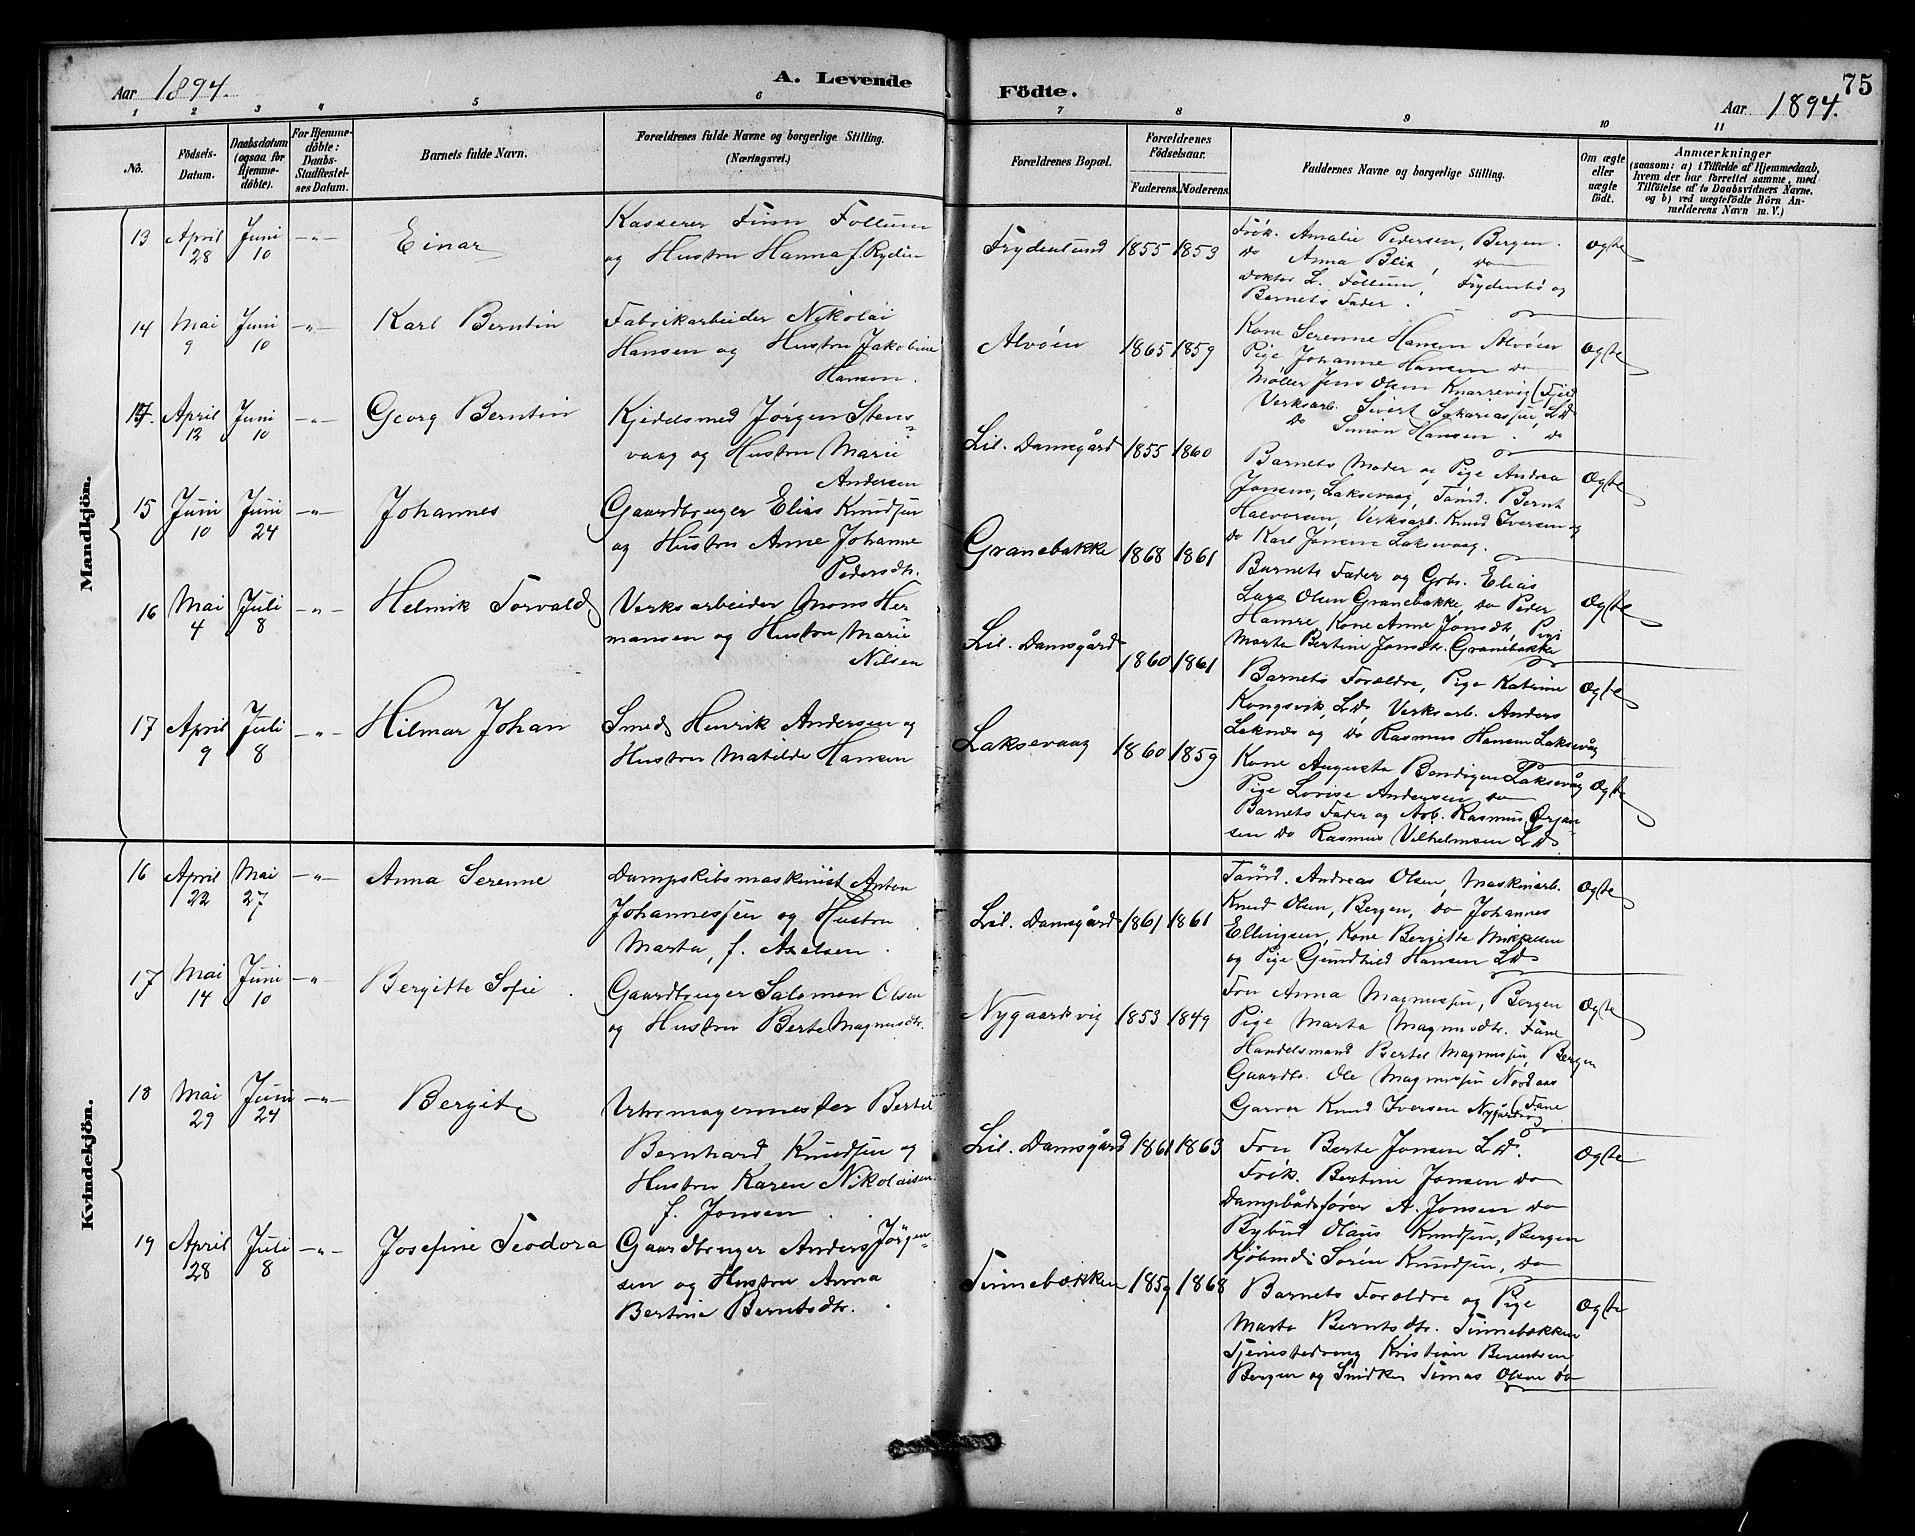 Aar 1894.
A. Levende
Födte.
75
Aar 1894.
1 2 3 4 5 6 7 8 9 10 11
No.
Födsels-
Datum.
Daabsdatum
(ogsaa for
Hjemme-
döbte).
For Hjemme-
döbte:
Daabs-
Stadfæstel-
ses Datum.
Barnets fulde Navn.
Forældrenes fulde Navne og borgerlige Stilling.
(Næringsvei.)
Forældrenes Bopæl.
Forældrenes
Födselsaar.
Faderens. Moderens.
Faddernes Navne og borgerlige Stilling.
Om ægte
eller
uægte
födt.
Anmærkninger
(saasom: a) i Tilfælde af Hjemmedaab,
hvem der har forrettet samme, med
Tilföielse af to Daabsvidners Navne,
og b) ved uægtefödte Börn An-
melderens Navn m. V.)
Mandkjön.
13 April 28 Juni 10 -"- Einar
Kasserer Finn Follum
og Hustru Hanna f. Rydin
Frydenlund 1855 1853
Frök. Amalie Pedersen, Bergen.
do Anna Blix, do
Doktor L. Follum, Frydenbö og
Barnets Fader.
Ægte
14 Mai 9 Juni 10 -"- Karl Berntin
Fabrikarbeider Nikolai
Hansen og Hustru Jakobine
Hansen.
Alvöen 1865 1859
Kone Serenne Hansen Alvöen
Pige Johanne Hansen do
Möller Jens Olsen Knarrevig (Fjeld
Verksarb. Sivert Sakariassen, L.D.
Do Simon Hansen. do
Ægte
April 12 Juni 10 -"- Georg Berntin
Kjedelsmed Jörgen Stens-
vaag og Hustru Marie
Andersen
Lil. Damsgård 1855 1860
Barnets Moder og Pige Andrea
Jonsens, Laksevaag, Tömd. Bernt
Halvorsen, Verksarb. Knud Iversen og
do Karl Jonsen Laksevaag.
Ægte
15 Juni 10 Juni 24 -"- Johannes
Gaardbruger Elias Knudsen
og Hustru Anne Johanne
Pedersdtr.
Granebakke 1868 1861
Barnets Fader og Grbr. Elias
Lars Olsen Granebakke, do Peder
Hamre, Kone Anne Jonsdtr., Pige
Marta Bertine Jonsdtr. Granebakke
Ægte
16 Mai 4 Juli 8 -"- Helmik Torvald
Verksarbeider Mons Her-
mansen og Hustru Marie
Nilsen
Lil. Damsgård 1860 1861
Barnets Forældre, Pige Katrine
Kongsvik, L.D. Verksarb. Anders
Laknes og do Rasmus Hansen Laksevåg
Ægte
17 April 9 Juli 8 -"- Hilmar Johan
Smed Henrik Andersen og
Hustru Matilde Hansen
Laksevaag 1860 1859
Kone Augusta Bendigsen Laksevåg
Pige Lovise Andersen do
Barnets Fader og Arb. Rasmus Örjan-
sen do Rasmus Vilhelmsen L.D.
Ægte
Kvindekjön.
16 April 22 Mai 27 -"- Anna Serenne
Dampskibsmaskinist Anton
Johannessen og Hustru
Marta, f. Axelsen.
Lil. Damsgård 1861 1861
Tömd. Andreas Olsen, Maskinarb.
Knud Olsen, Bergen, do Johannes
Ellingsen, Kone Bergitte Mikkelsen
og Pige Gundhild Hansen L.D.
Ægte
17 Mai 14 Juni 10 -"- Bergitte Sofie
Gaardbruger Salomon Olsen
og Hustru Berte Magnusdtr.
Nygaardsvig 1853 1849
Fru Anna Magnussen, Bergen
Pige Marta Magnusdtr. Fane
Handelsmand Bertel Magnussen, Bergen
Gaardbr. Ole Magnussen Nordaas
Garver Knud Iversen Nygårdsvg (Fane
Ægte
18 Mai 29 Juni 24 -"- Bergit
Urtemagermester Bertel
Bernhard Knudsen og
Hustru Karen Nikolaisen
f. Jonsen.
Lil. Damsgård 1861 1863
Fru Berte Jonsen L.D.
Frök. Bertine Jonsen do
Dampbådsförer A. Jonsen do
Bybud Olaus Knudsen, Bergen
Kjöbmd. Sören Knudsen, do
Ægte
19 April 28 Juli 8 -"- Josefine Teodora
Gaardbruger Anders Jörgen-
sen og Hustru Anna
Bertine Berntsdtr.
Tinnebækken 1859 1868
Barnets Forældre og Pige
Marta Berntsdtr. Tinnebækken
Tjenestedreng Kristian Berentsen
Bergen og Snidker Tomas Olsen do
Ægte